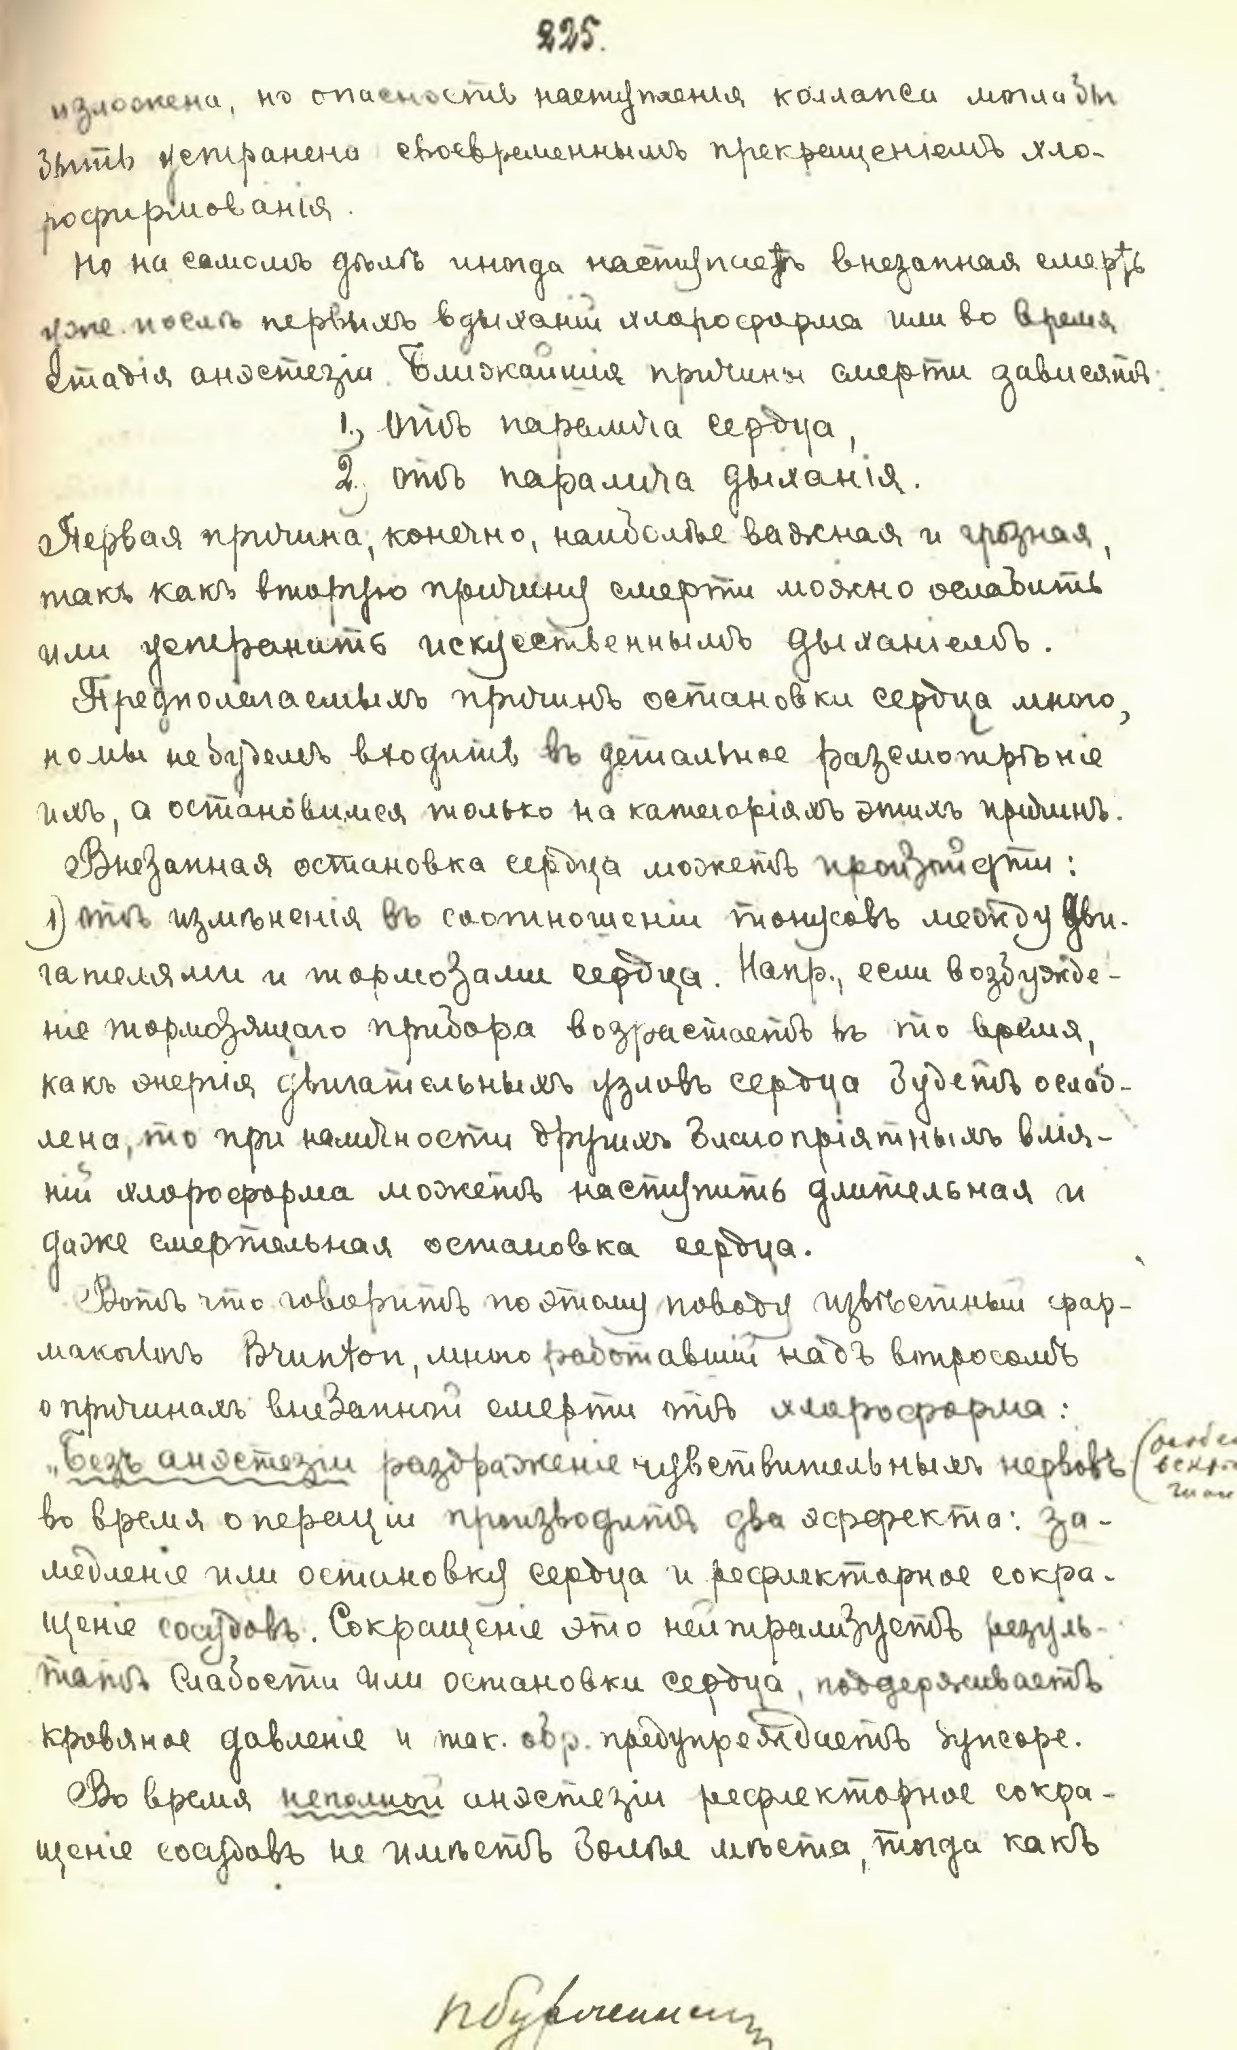 225.
изложена, но опасность наступленія коллапса могла бы
быть устранена своевременнымъ прекращеніемъ хло-
роформованія.
Но на самомъ дѣлѣ иногда наступаетъ внезапная смерть
уже послѣ первыхъ вдыханій хлороформа или во время
стадія анэстезіи. Ближайшія причины смерти зависятъ:
1, отъ паралича сердца,
2, отъ паралича дыханія.
Первая причина, конечно, наиболѣе важная и грозная,
такъ какъ вторую причину смерти можно ослабить
или устранить искусственнымъ дыханіемъ.
Предполагаемыхъ причинъ остановки сердца много,
но мы не будемъ входить въ детальное разсмотрѣніе
ихъ, а остановимся только на категоріяхъ этихъ причинъ.
Внезапная остановка сердца можетъ произойдти:
1) отъ измѣненія въ соотношеніи тонусовъ между дви-
гателями и тормозами сердца. Напр., если возбужде-
ніе тормозящаго прибора возрастаетъ въ то время,
какъ энергія двигательныхъ узловъ сердца будетъ ослаб-
лена, то при наличности другихъ благопріятныхъ влія-
ній хлороформа можетъ наступить длительная и
даже смертельная остановка сердца.
Вотъ что говоритъ по этому поводу извѣстный фар-
макологъ Brunton, много работавшій надъ вопросомъ
о причинахъ внезапной смерти отъ хлороформа:
„Безъ анэстезіи раздраженіе чувствительныхъ нервовъ
во время операціи производитъ два эффекта: за-
медленіе или остановку сердца и рефлекторное сокра-
щеніе сосудовъ. Сокращеніе это нейтрализуетъ резуль-
татъ слабости или остановки сердца, поддерживаетъ
кровяное давленіе и так. обр. предупреждаетъ syncope.
Во время неполной анэстезіи рефлекторное сокра-
щеніе сосудовъ не имѣетъ болѣе мѣста, тогда какъ